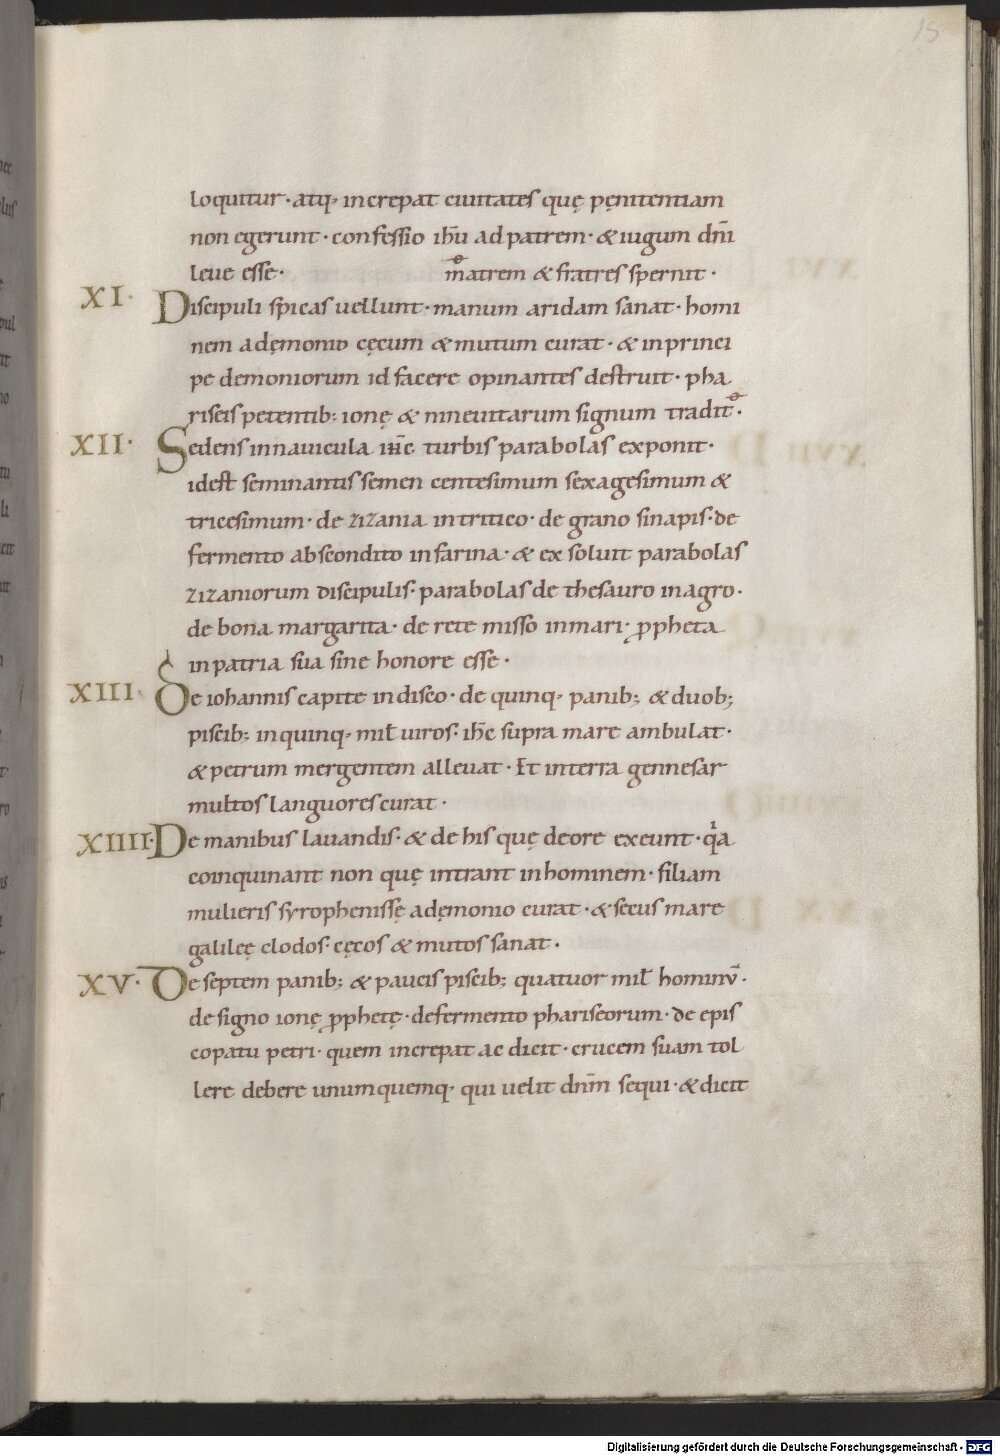 15
loquitur · atq· increpat ciuitates quę pęnitentiam
non egerunt · confessio ihu̅ ad patrem · & iugum dn̅i
leue esse · matrem & fratres spernit ·
XI · Discipuli spicas uellunt · manum aridam sanat · homi
nem a dęmonio cęcum & mutum curat · & in princi
pe demoniorum id facere opinantes destruit · pha
riseis petentib; ionę & nineuitarum signum tradit ·
XII · Sedens in nauicula ih̅c turbis parabolas exponit ·
idest seminantis semen centesimum sexagesimum &
tricesimum · de zizania in tritico · de grano sinapis · de
fermento abscondito in farina · & exsoluit parabolas
zizaniorum discipulis · parabolas de thesauro in agro ·
de bona margarita · de rete misso in mari · ꝓpheta
in patria sua sine honore esse ·
XIII · De iohannis capite in disco · de quinq· panib; & duob;
piscib; in quinq· mil̅ uiros · ih̅c supra mare ambulat ·
& petrum mergentem alleuat · Et in terra gennesar
multos languores curat ·
XIIII · De manibus lauandis · & de his quę de ore exeunt · qͥa
coinquinant non quę intrant in hominem · filiam
mulieris syrophenissę a dęmonio curat · & secus mare
galileę clodos · cęcos & mutos sanat ·
XV · De septem panib; & paucis piscib; quatuor mil̅ hominu̅ ·
de signo ionę ꝓphetę · de fermento phariseorum · de epis
copatu petri · quem increpat ac dicit · crucem suam tol
lere debere unumquemq· qui uelit dn̅m sequi · & dicit
Digitalisierung gefördert durch die Deutsche Forschungsgemeinschaft - DFG